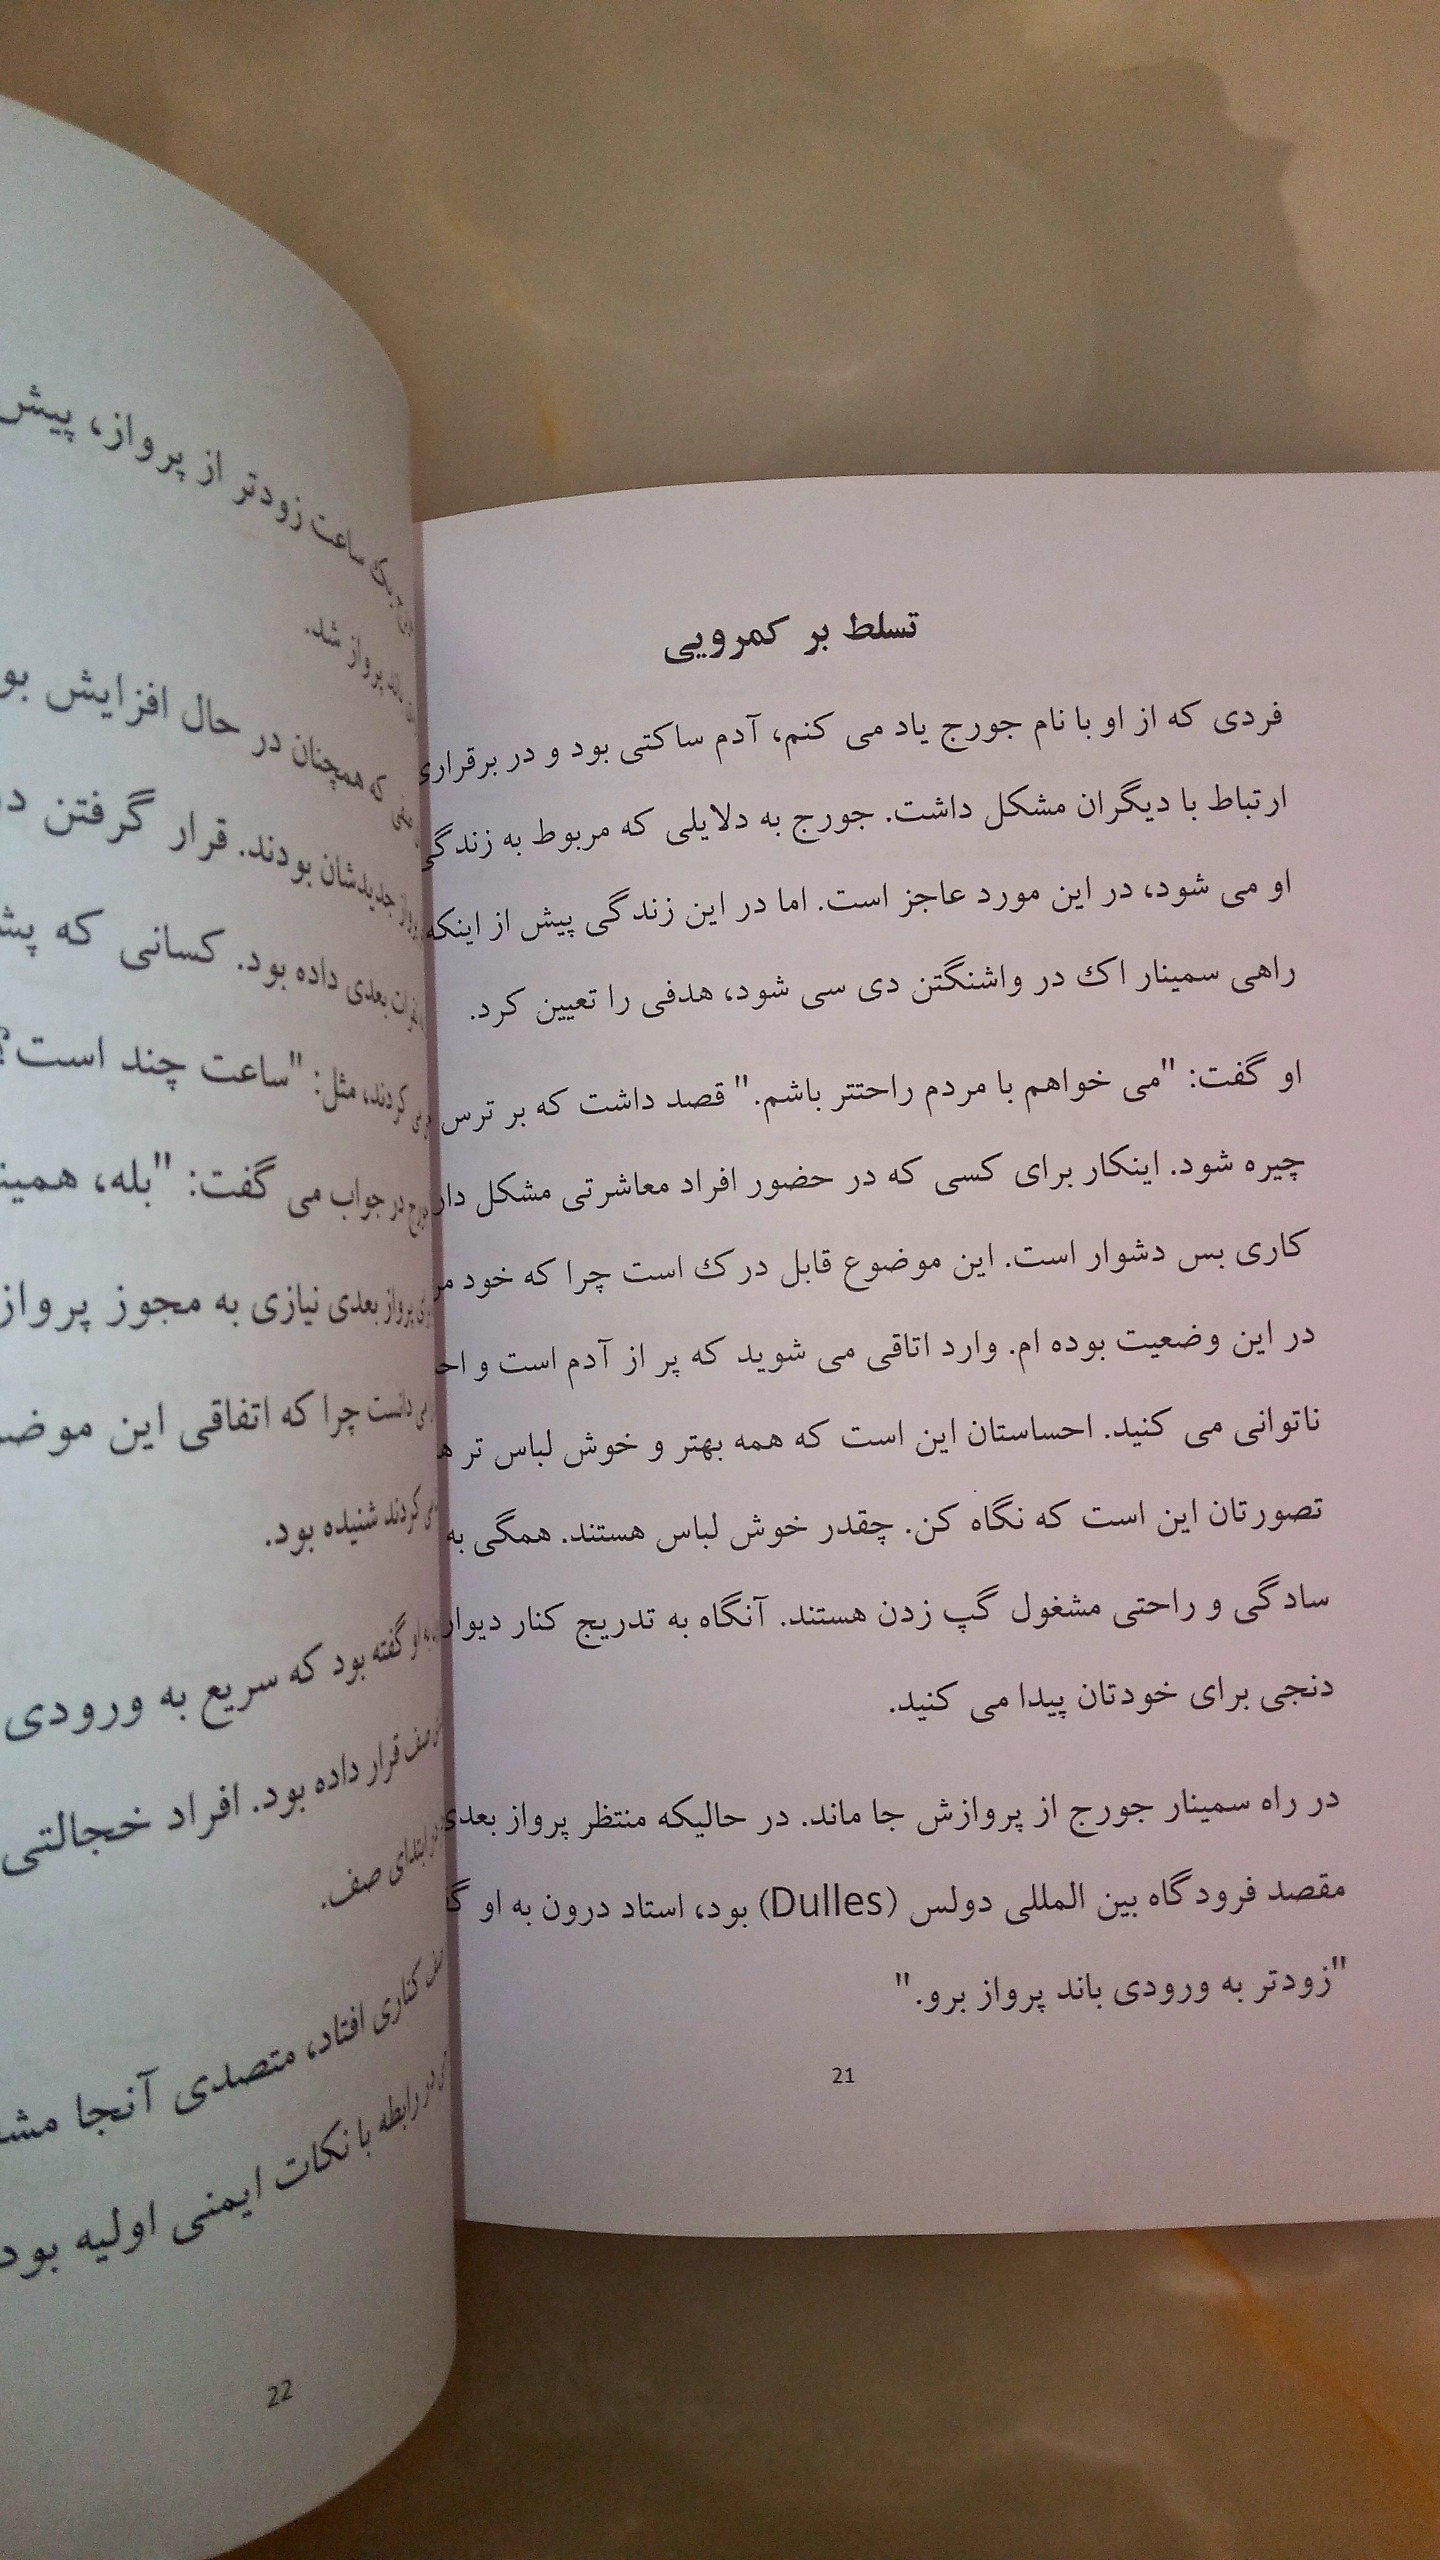 تسلط بر کمرویی
فردی که از او با نام جورج یاد می کنم، آدم ساکتی بود و در برقراری
ارتباط با دیگران مشکل داشت. جورج به دلایلی که مربوط به زندگی
او می شود، در این مورد عاجز است. اما در این زندگی پیش از اینکه
راهی سمینار اک در واشنگتن دی سی شود، هدفی را تعیین کرد.
او گفت: "می خواهم با مردم راحتتر باشم." قصد داشت که بر ترس
چیره شود. اینکار برای کسی که در حضور افراد معاشرتی مشکل
کاری بس دشوار است. این موضوع قابل درک است چرا که خود
در این وضعیت بوده ام. وارد اتاقی می شوید که پر از آدم است و
ناتوانی می کنید. احساستان این است که همه بهتر و خوش لباس تر
تصورتان این است که نگاه کن. چقدر خوش لباس هستند. همگی به
سادگی و راحتی مشغول گپ زدن هستند. آنگاه به تدریج کنار دیوار
دنجی برای خودتان پیدا می کنید.
در راه سمینار جورج از پروازش جا ماند. در حالیکه منتظر پرواز بعدی
مقصد فرودگاه بین المللی دولس (Dulles) بود، استاد درون به او
"زودتر به ورودی باند پرواز برو."
21
یک ساعت زودتر از پرواز، پیش
پرواز شد.
که همچنان در حال افزایش
جدیدشان بودند. قرار گرفتن
بعدی داده بود. کسانی که
می کردند، مثل: "ساعت چند است؟
در جواب می گفت: "بله،
پرواز بعدی نیازی به مجوز پرواز
می دانست چرا که اتفاقی این
می کردند شنیده بود.
او گفته بود که سریع به ورودی
صف قرار داده بود. افراد خجالتی
ابتدای صف.
کناری افتاد، متصدی آنجا
در رابطه با نکات ایمنی اولیه
22